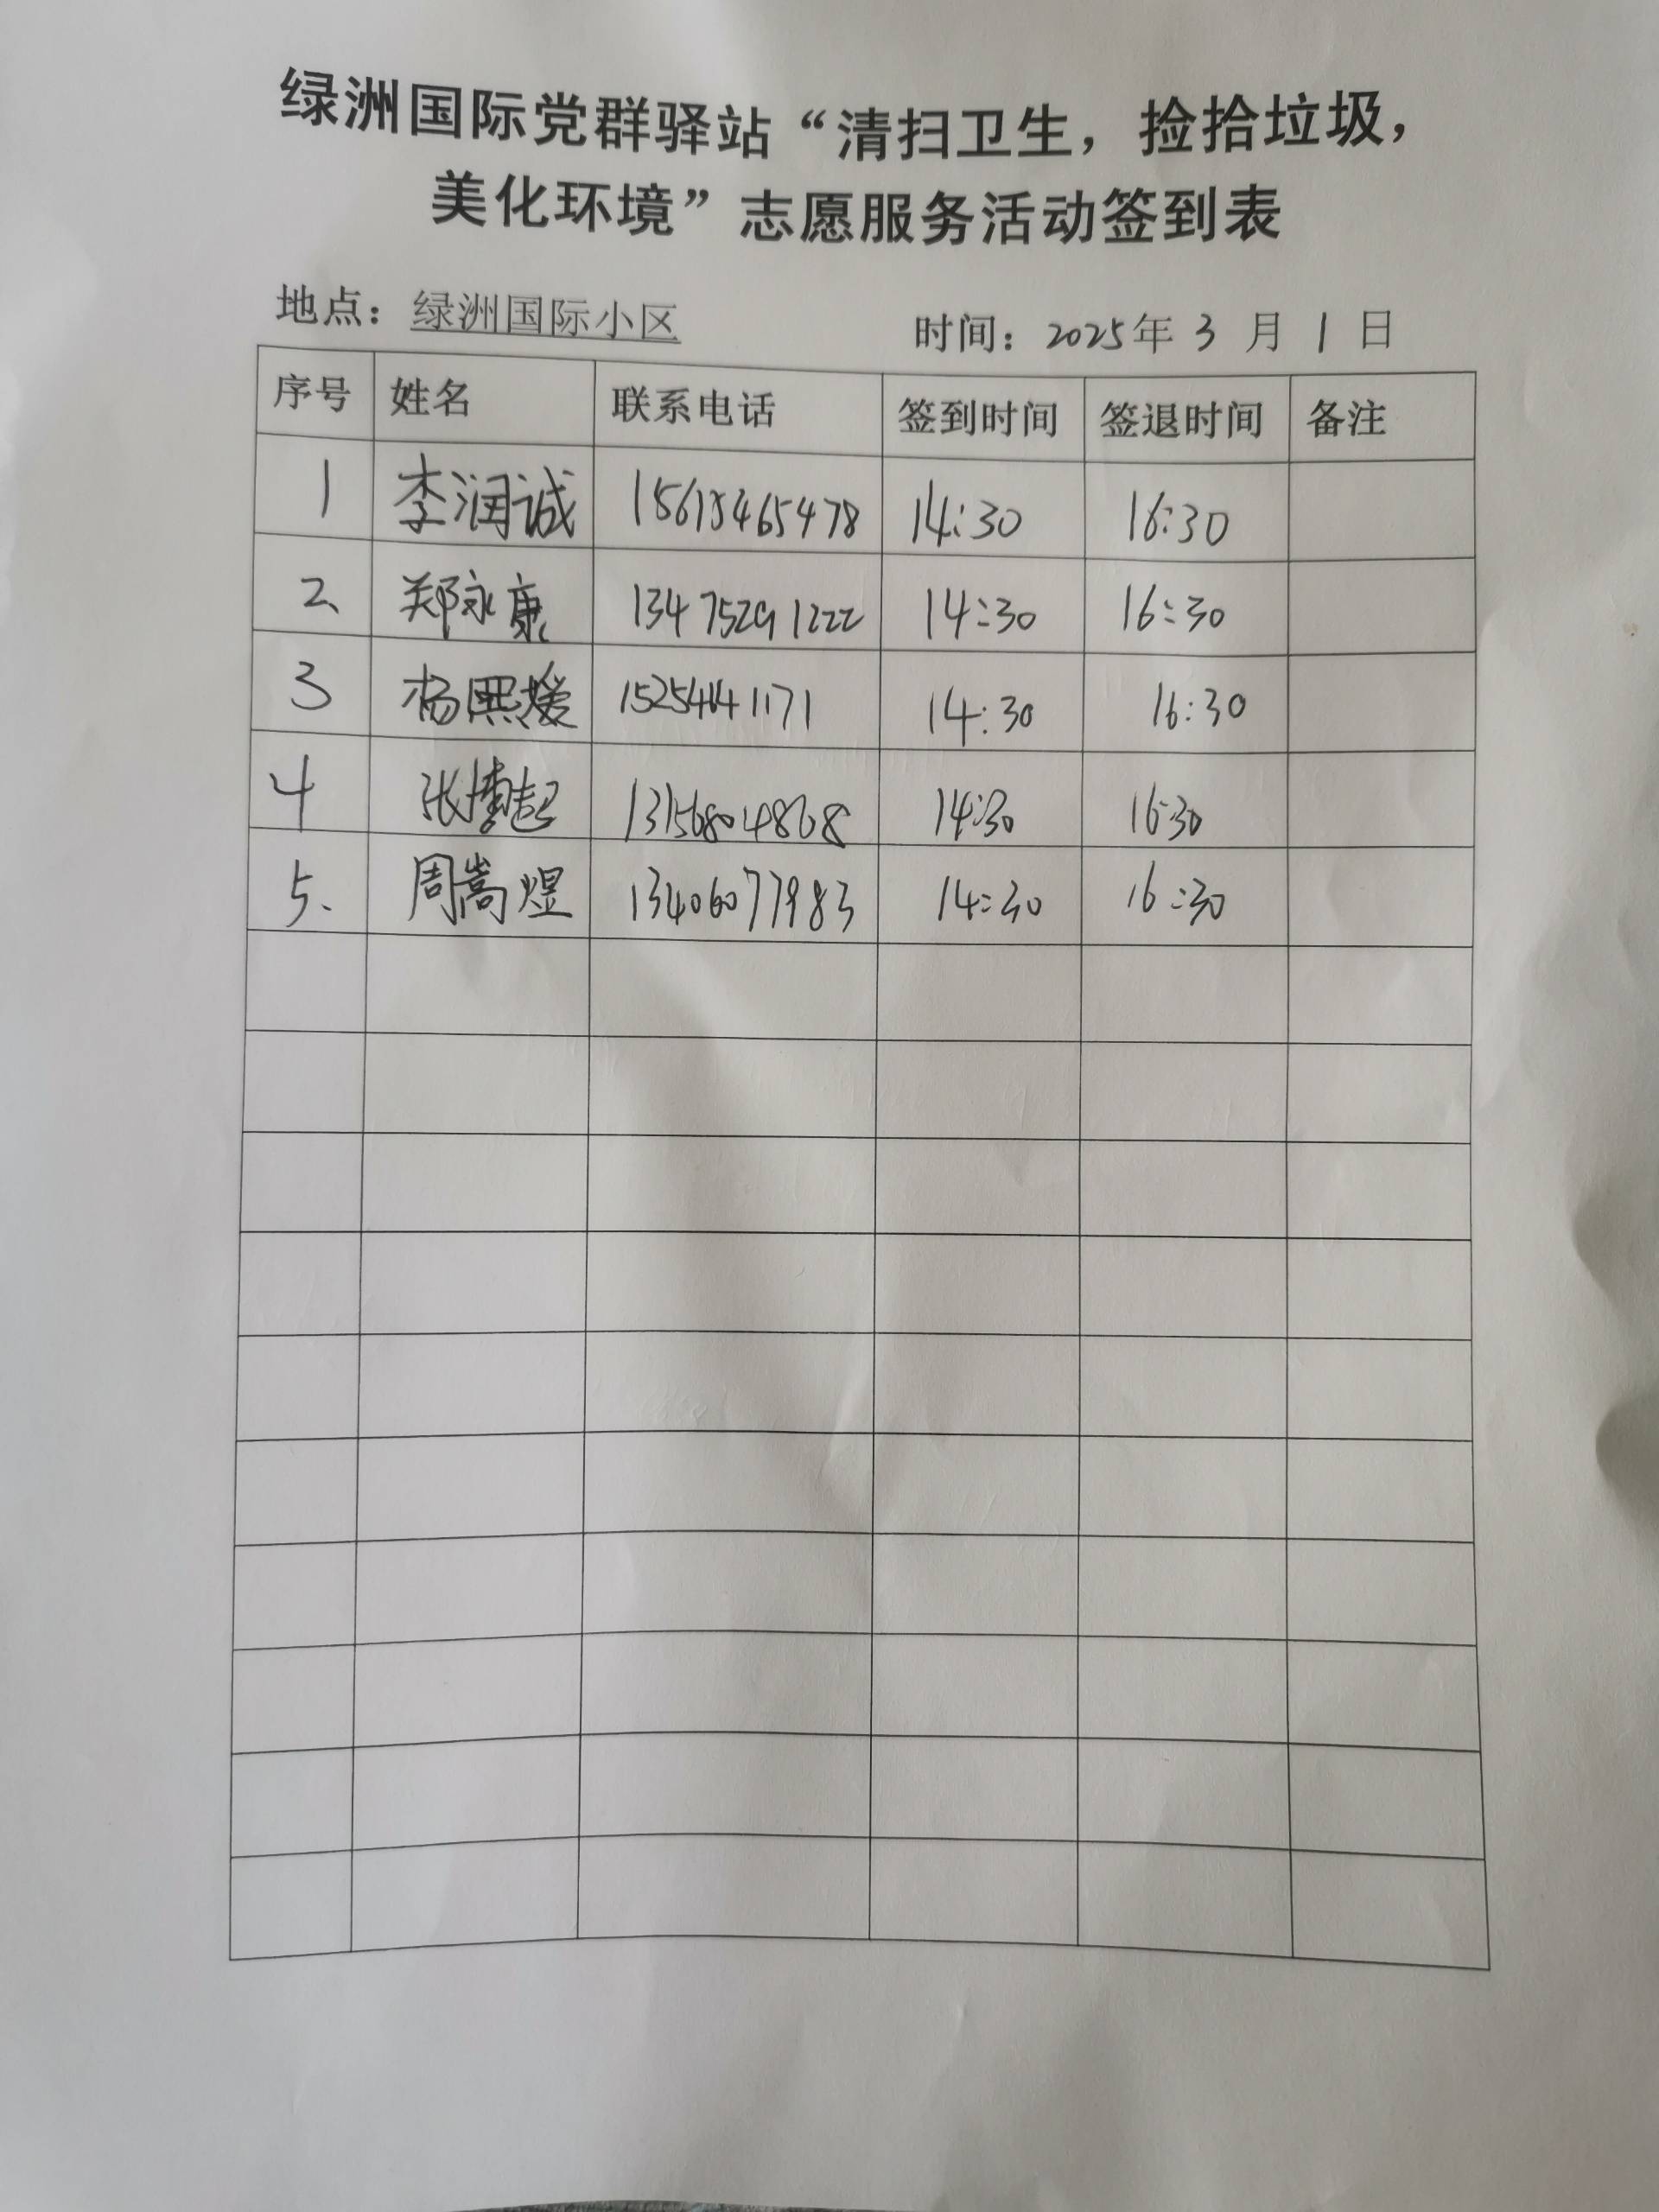 绿洲国际党群驿站“清扫卫生，捡拾垃圾，
美化环境”志愿服务活动签到表
地点：绿洲国际小区 时间：2025年 3 月 1 日
序号 姓名 联系电话 签到时间 签退时间 备注
1 李润诚 14:30 16:30
2、 郑永康 13475291222 14:30 16:30
3 杨熙媛 14:30 16:30
4 14:30 16:30
5. 周嵩煜 13406077983 14:30 16:30